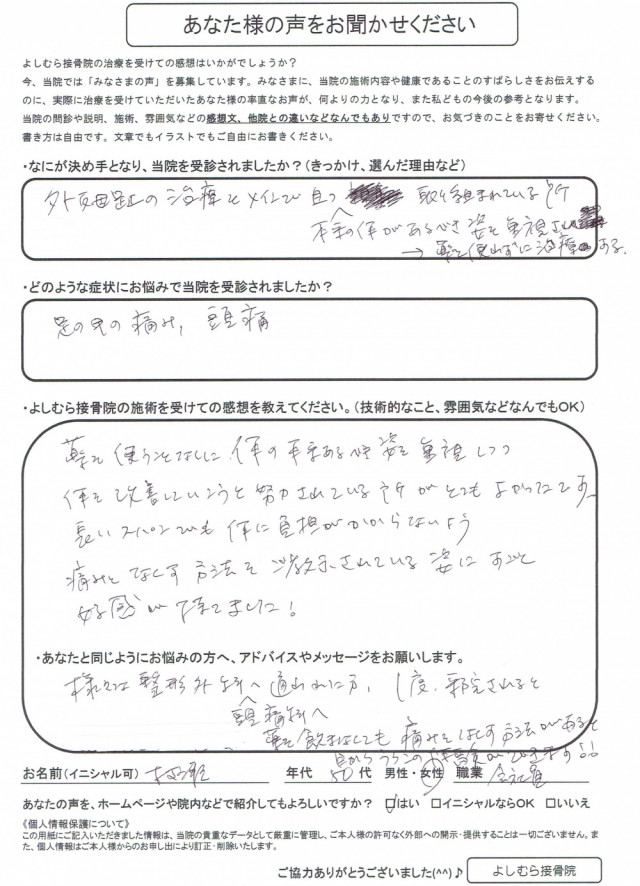 あなた様の声をお聞かせください
よしむら接骨院の治療を受けての感想はいかがでしょうか？
今、当院では「みなさまの声」を募集しています。みなさまに、当院の施術内容や健康であることのすばらしさをお伝えする
のに、実際に治療を受けていただいたあなた様の率直なお声が、何よりの力となり、また私どもの今後の参考となります。
当院の問診や説明、施術、雰囲気などの感想文、他院との違いなどなんでもありですので、お気づきのことをお寄せください。
書き方は自由です。文章でもイラストでもご自由にお書きください。
・なにが決め手となり、当院を受診されましたか？（きっかけ、選んだ理由など）
外反母趾の治療をメインで 取り組まれている所
本来の体があるべき姿を重視され
→ 薬を使わずに治療 ある。
・どのような症状にお悩みで当院を受診されましたか？
足の 痛み、頭痛
・よしむら接骨院の施術を受けての感想を教えてください。（技術的なこと、雰囲気などなんでもOK）
薬を使うことなしに 体の本来あるべき姿を重視しつつ
体を改善していこうと努力されている所がとてもよかったです
長いスパンでも体に負担がかからないよう
痛みをなくす方法を 教示されている姿に
好感が できました！
・あなたと同じようにお悩みの方へ、アドバイスやメッセージをお願いします。
様々な整形外科へ 通われた方、1度、来院されると
頭痛科へ
薬を飲まなくても 痛みをなくす方法があると
目からうろこの体験ができます！！
お名前（イニシャル可） 年代 50代 男性・女性 職業 会社員
あなたの声を、ホームページや院内などで紹介してもよろしいですか？ ☑はい □イニシャルならOK □いいえ
《個人情報保護について》
この用紙にご記入いただきました情報は、当院の貴重なデータとして厳重に管理し、ご本人様の許可なく外部への開示・提供することは一切ございません。ま
た、個人情報はご本人様からのお申し出により訂正・削除いたします。
ご協力ありがとうございました(^^)♪ よしむら接骨院